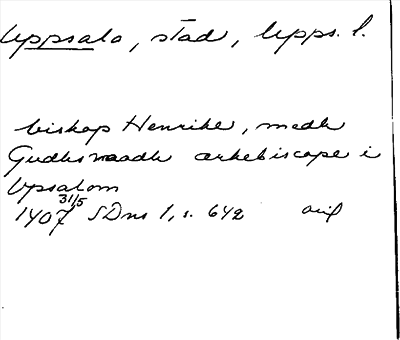 Uppsala, stad, Upps. l.
biskop Henrike, medh
Gudhs naadh erkebiscope i
Vpsalom
1407 31/5 SDns 1, s. 642 orig